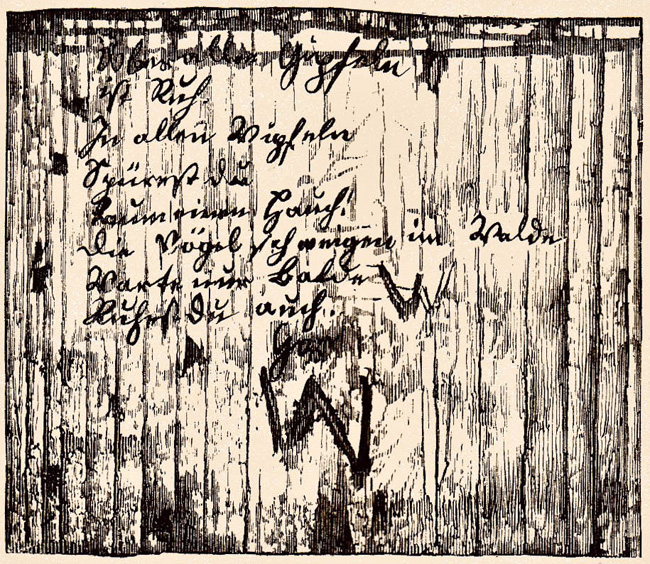 Über allen Gipfeln
ist Ruh
In allen Wipfeln
Spürest du
Kaum einen Hauch.
die Vögel schweigen im Walde
Warte nur Balde
Ruhest du auch.
W
W